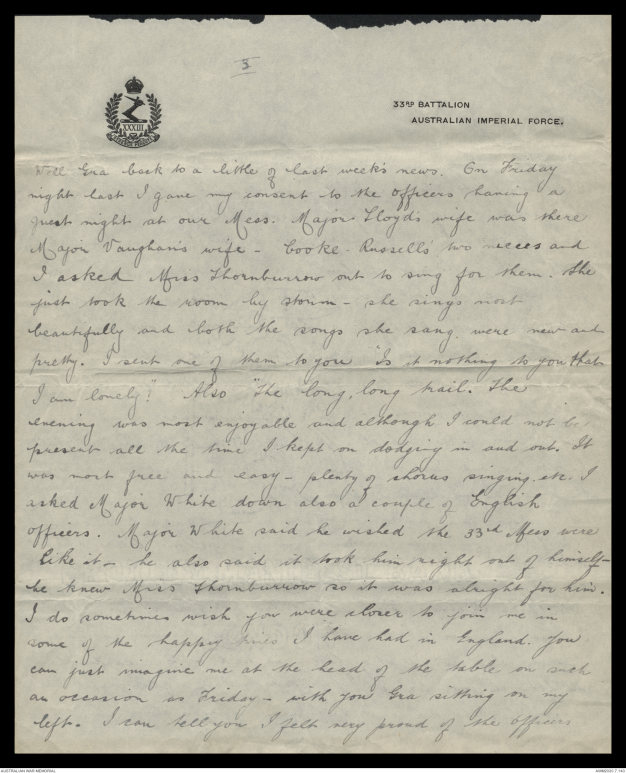 3
33RD BATTALION
AUSTRALIAN IMPERIAL FORCE.
XXXIII
Well Era back to a little of last week's news. On Friday
night last I gave my consent to the officers having a
guest night at our Mess. Major Lloyd's wife was there
Major Vaughan's wife - Cooke - Russell's two nieces and
I asked Miss Thornburrow out to sing for them. She
just took the room by storm - she sings most
beautifully and both the songs she sang were new and
pretty. I sent one of them to you "Is it nothing to you that
I am lonely?" Also "The long, long trail. The
evening was most enjoyable and although I could not be
present all the time I kept on dodging in and out. It
was most free and easy - plenty of chorus singing etc. I
asked Major White down also a couple of English
officers. Major White said he wished the 33rd Mess were
like it - he also said it took him right out of himself -
he knew Miss Thornburrow so it was alright for him.
I do sometimes wish you were closer to join me in
some of the happy times I have had in England. You
can just imagine me at the head of the table on such
an occasion as Friday - with you Era sitting on my
left. I can tell you I felt very proud of the officers
AUSTRALIAN WAR MEMORIAL